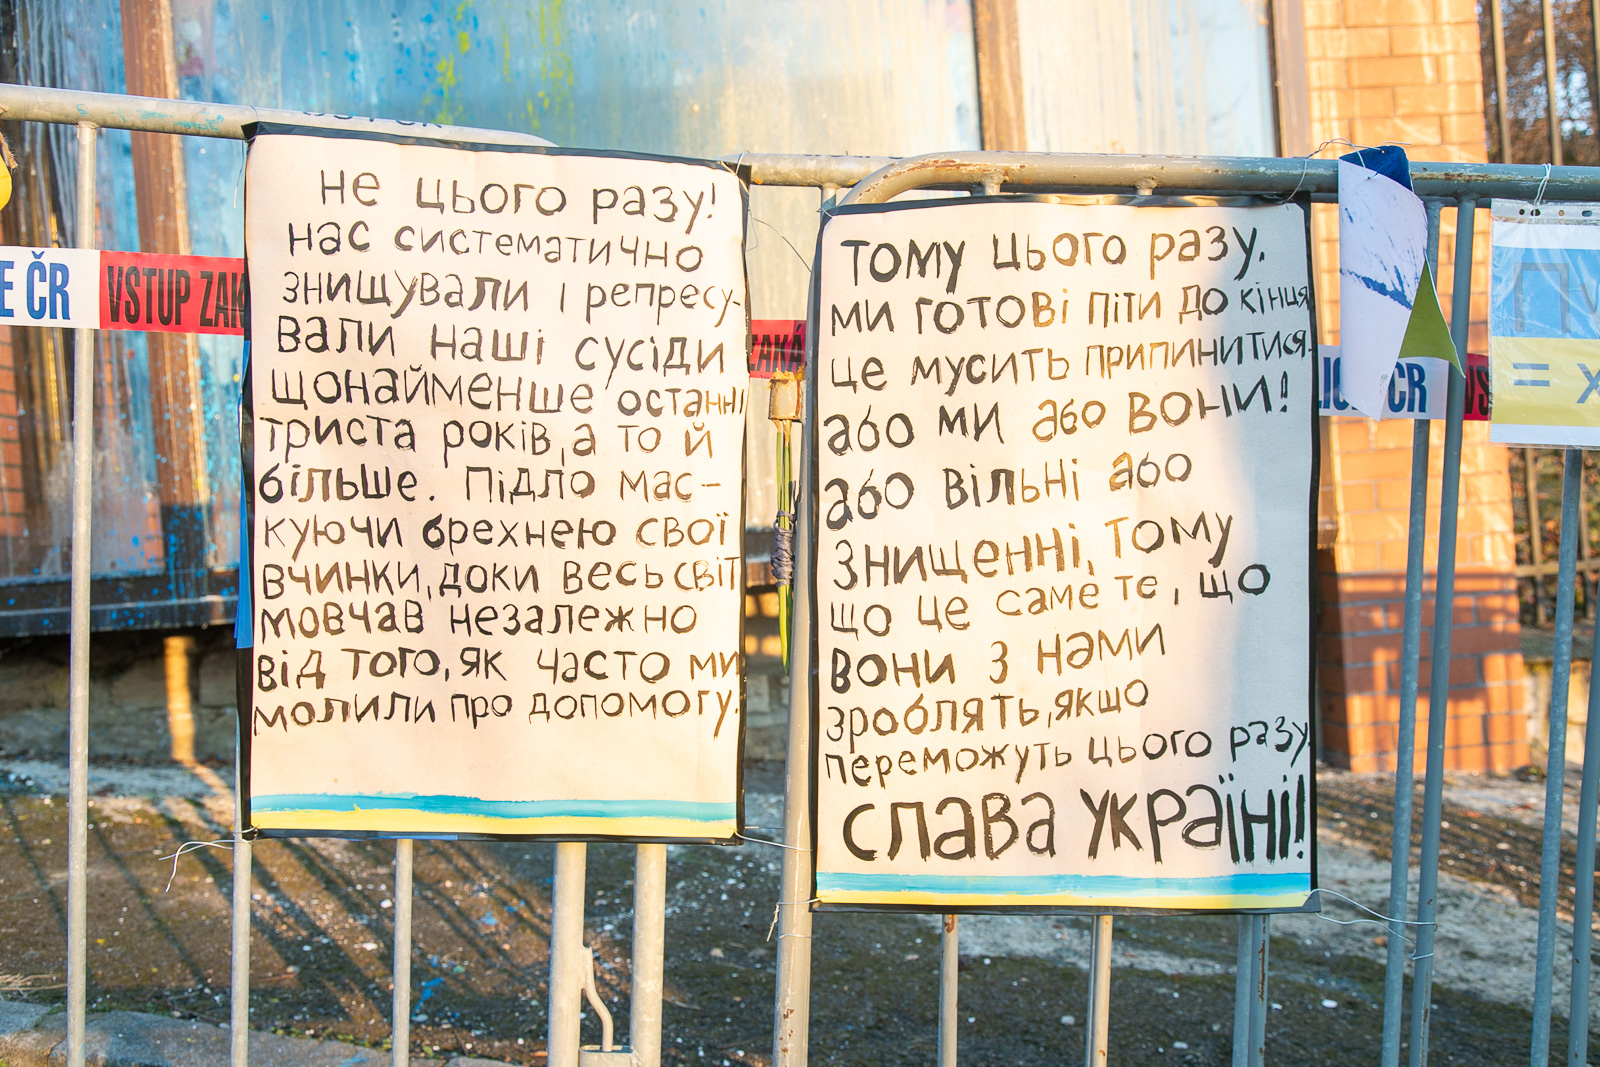 E ČR VSTUP ZAK
не цього разу!
нас систематично
знищували і репресу-
вали наші сусіди
щонайменше останні
триста років, а то й
більше. Підло мас-
куючи брехнею свої
вчинки, доки весь світ
мовчав незалежно
від того, як часто ми
молили про допомогу.
ZAKÁ
тому цього разу.
ми готові піти до кінця
це мусить припинитися.
або ми або вони!
або вільні або
знищенні, тому
що це саме те, що
вони з нами
зроблять, якщо
переможуть цього разу
слава україні!
ČR VS
= х